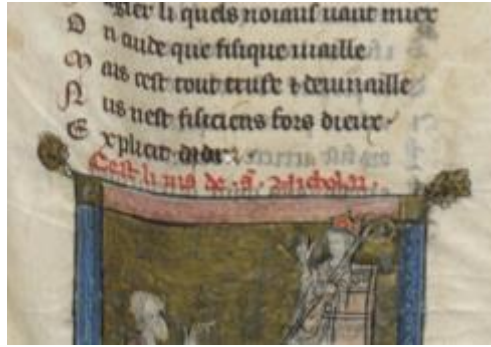 sier li quels noiaus uaut miex
On cuide que fisique uaille
Mais cest tout trufe & deuinaille
Nus nest fisiciens fors dieux
Explicit
Cest li de s Nicholai